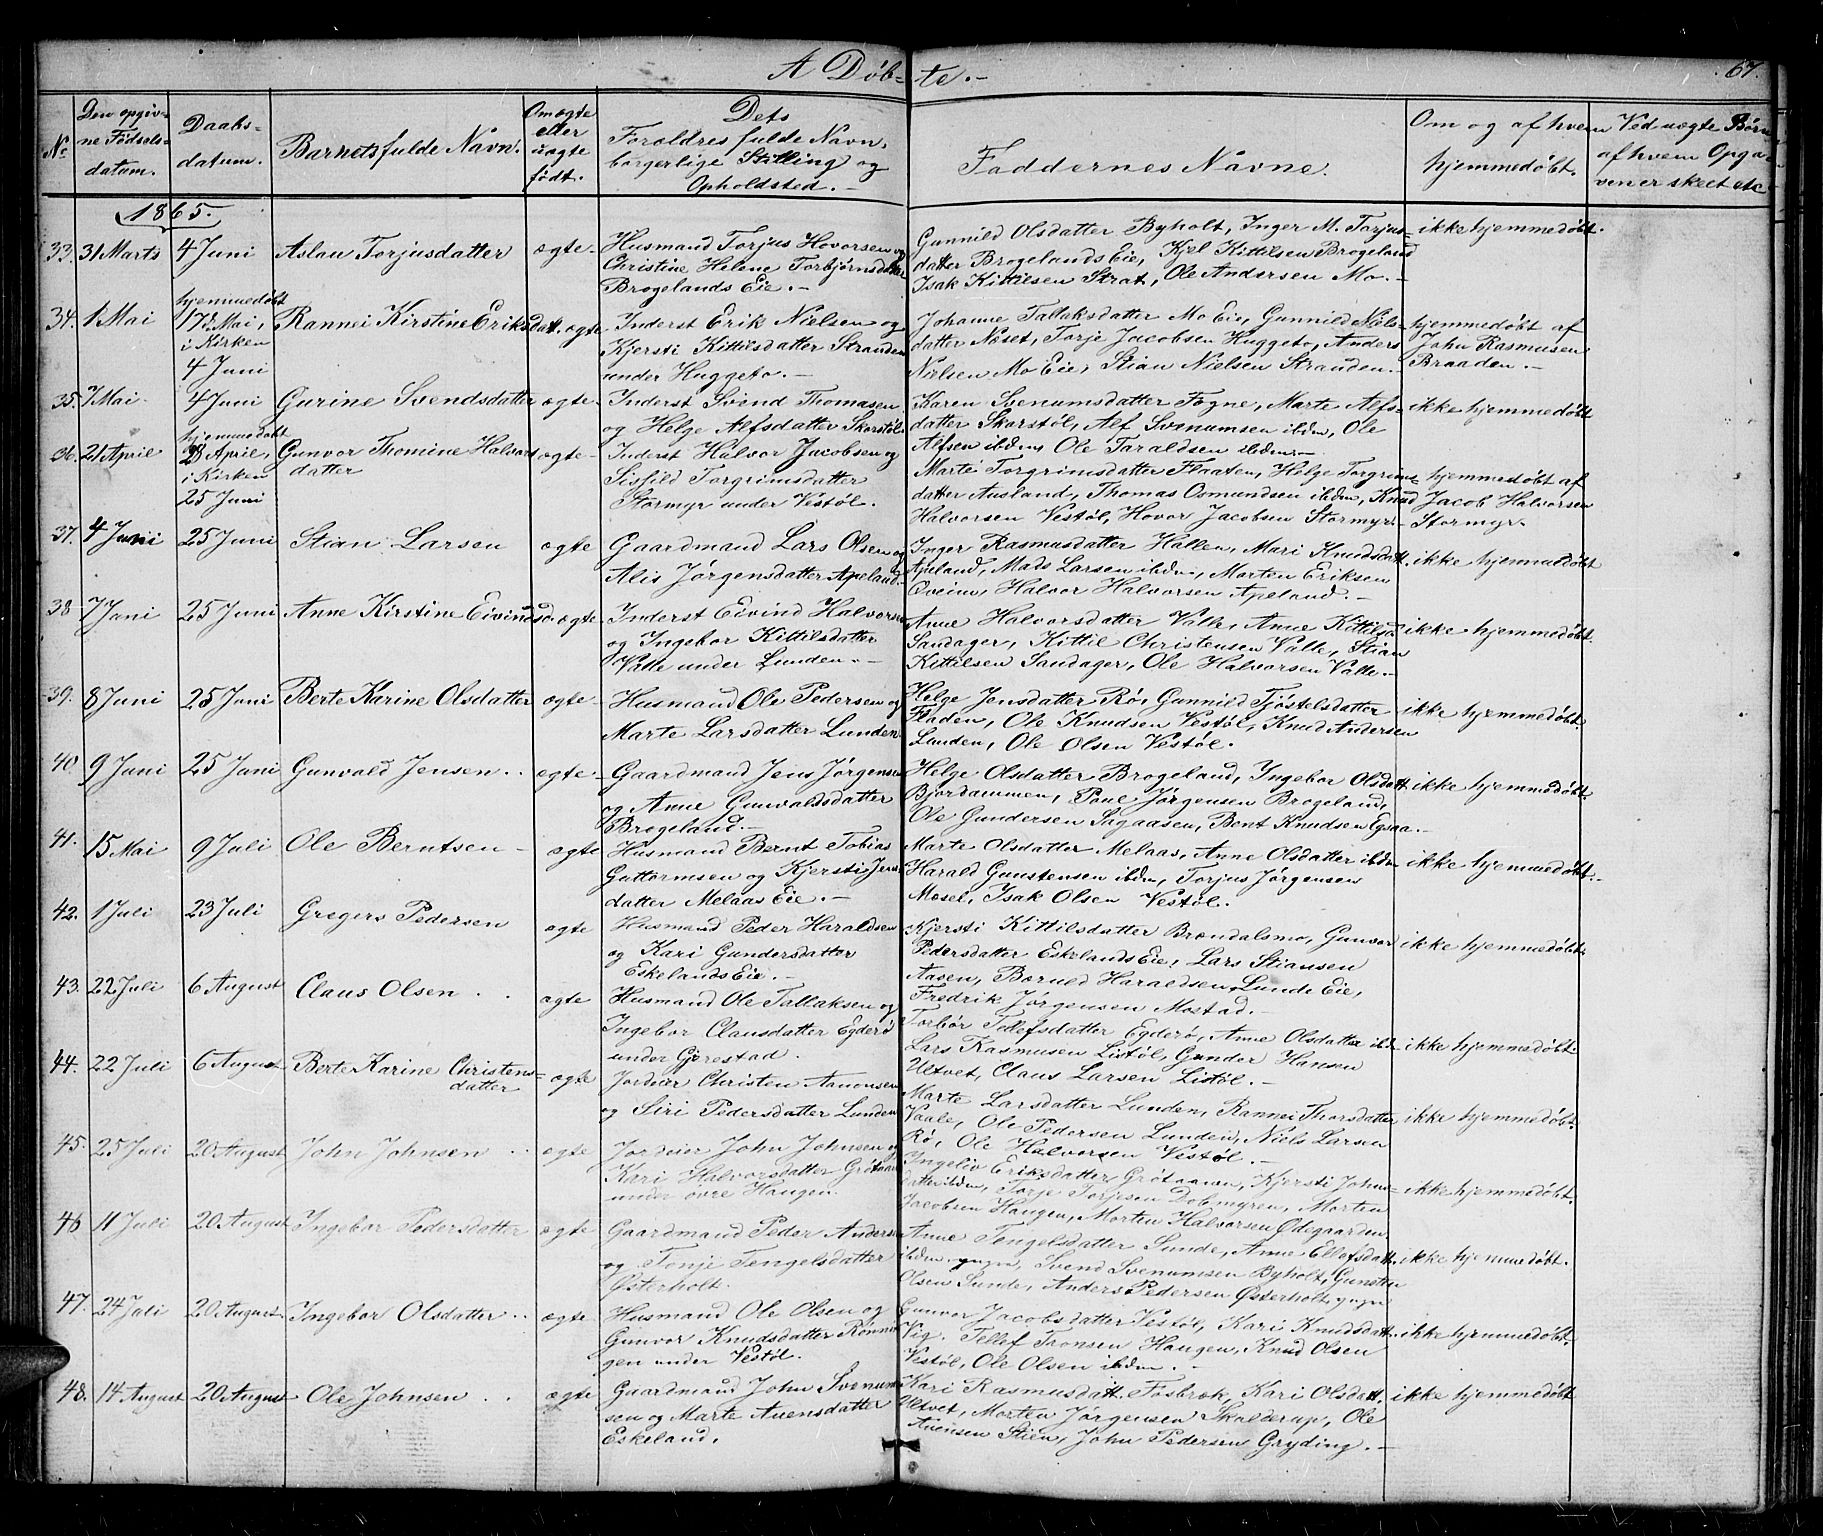 A Døbte.-
67.
No
Den opgivne Fødselsdatum.
Daabsdatum.
Barnets fulde Navn.
Om ægte eller uægte født.
Dets Forældres fulde Navn, borgerlige Stilling og Opholdsted.-
Faddernes Navne.
Om og af hvem hjemmedøbt.
Ved uægte Børn af hvem Opgaven er skeet etc
1865.
33. 31 Marts 4 Juni Aslau Torjusdatter ægte- Husmand Torjus Hovorsen og
Christine Helene Torbjørnsdatter
Brogelands Eie.-
Gunnild Olsdatter Byholt, Inger M. Torjus-
datter Brogelands Eie, Kjel Kittilsen Brogeland
Isak Kittilsen Strat, Ole Andersen Mo.-
ikke hjemmedøbt.
34. 1 Mai hjemmedøbt
17de Mai,
i Kirken
4 Juni
Rannei Kirstine Eriksdatt. ægte Inderst Erik Nielsen og
Kjersti Kittilsdatter Stranden
under Huggeto.-
Johanne Tallaksdatter Mo Eie, Gunnild Niels-
datter Neset, Torje Jacobsen Huggeto, Anders
Nielsen Mo Eie, Stian Nielsen Stranden.
hjemmedøbt af
John Rasmusen
Braaden.-
35. 7 Mai. 4 Juni Gurine Svendsdatter ægte- Inderst Svend Thomasen
og Helge Alfsdatter Skorstøl
Karen Svenumsdatter Fogne, Marte Alfs-
datter Skorstøl, Alf Svenumsen ibdm, Ole
Alfsen ibdm, Ole Taraldsen ibdm.-
ikke hjemmedøbt
36. 21 April hjemmedøbt
23 April,
i Kirken
25 Juni
Gunvor Thomine Halvors
datter
ægte- Inderst Halvor Jacobsen og
Sisfild Torgrimsdatter
Stormyr under Vestøl.
Marte Torgrimsdatter Flaaten, Helge Torgrims-
datter Ausland, Thomas Osmundsen ibdm, Knud
Halvorsen Vestøl, Hovor Jacobsen Stormyr.-
hjemmedøbt af
Jacob Halvorsen
Stormyr.
37. 4 Juni 25 Juni Stian Larsen ægte Gaardmand Lars Olsen og
Alis Jørgensdatter Apeland
Inger Rasmusdatter Hallen, Mari Knudsdatt.
Apeland, Mads Larsen ibdm, Morten Eriksen
Oveim, Halvor Halvorsen Apeland.-
ikke hjemmedøbt
38 7 Juni 25 Juni Anne Kirstine Eivindsd. ægte- Inderst Eivind Halvorsen
og Ingebor Kittilsdatter
Valle under Lunden.-
Anne Halvorsdatter Valle, Anne Kittilsd.
Sandager, Kittil Christensen Valle, Stian
Kittilsen Sandager, Ole Halvorsen Valle.-
ikke hjemmedøbt.
39. 8 Juni 25 Juni Berte Karine Olsdatter ægte- Husmand Ole Pedersen og
Marte Larsdatter Lunden
Helge Jensdatter Rø, Gunnild Tjøstelsdatter
Fladen, Ole Knudsen Vestøl, Knud Andersen
Lunden, Ole Olsen Vestøl.
ikke hjemmedøbt.
40 9 Juni 25 Juni Gunvald Jensen.. ægte- Gaardmand Jens Jørgensen
og Anne Gunvaldsdatter
Brogeland.-
Helge Olsdatter Brogeland, Ingebor Olsdatt
Bjordammen, Poul Jørgensen Brogeland,
Ole Gundersen Sagaasen, Bent Knudsen Egsaa.-
ikke hjemmedøbt.
41. 15 Mai 9 Juli Ole Berntsen- ægte Husmand Bernt Tobias
Guttormsen og Kjersti Jens-
datter Melaas Eie.-
Marte Olsdatter Melaas, Anne Olsdatter ibdm
Harald Gunstensen ibdm, Torjus Jørgensen
Mosel, Isak Olsen Vestøl.
ikke hjemmedøbt.
42. 1 Juli 23 Juli Gregers Pedersen ægte Husmand Peder Haraldsen
og Kari Gundersdatter
Eskelands Eie.-
Kjersti Kittilsdatter Brændalsmo, Gunvor
Pedersdatter Eskelands Eie, Lars Stiansen
Aasen, Haraldsen Lunde Eie,
Fredrik Jørgensen Mostad.-
ikke hjemmedøbt.
43. 22 Juli 6 August Claus Olsen.. ægte Husmand Ole Tallaksen og
Ingebor Clausdatter Egderø
under Gjerestad.
Torbør Tellefsdatter Egderø, Anne Olsdatter ibdm
Lars Rasmusen Listøl, Gunder Hansen
Ultvet, Claus Larsen Listøl.-
ikke hjemmedøbt.
44. 22 Juli 6 August Berte Karine Christens-
datter
ægte Jordeier Christen Aanonsen
og Siri Pedersdatter Lunden
Marte Larsdatter Lunden, Rannei Thorsdatter
Vaale, Ole Pedersen Lunden, Niels Larsen
Rø, Ole Halvorsen Vestøl.-
ikke hjemmedøbt.
45. 25 Juli 20 August John Johnsen.. ægte Jordeier John Johnsen og
Kari Halvorsdatter
under øvre Haugen.
Ingeliv Eriksdatter Grøtaaen, Kjersti Johns-
datter ibdm, Torje Torjesen Dobmyren, Morten
Jacobsen Haugen, Morten Halvorsen Ødegaarden
ikke hjemmedøbt.
46 11 Juli 20 August Ingebor Pedersdatter ægte Gaardmand Peder Andersen
og Tonje Tengelsdatter
Østerholt.
Anne Tengelsdatter Sunde, Anne Ellefsdatt.
ibdm, Svend Svenumsen Byholt, Gunsten
Olsen Sunde, Anders Pedersen Østerholt,
ikke hjemmedøbt.
47. 24 Juli 20 August Ingebor Olsdatter.. ægte Husmand Ole Olsen og
Gunvor Knudsdatter Rønnin-
gen under Vestøl.
Gunvor Jacobsdatter Vestøl, Kari Knudsdatt.
Vig, Tellef Tronsen Haugen, Knud Olsen
Vestøl, Ole Olsen ibdm.-
ikke hjemmedøbt.
48. 14 August 20 August Ole Johnsen.. ægte Gaardmand John Svenum-
sen og Marte Auensdatter
Eskeland.
Kari Rasmusdatt. Fosbræk, Kari Olsdatt.
Ultvet, Morten Jørgensen Skalderup, Ole
Auensen Stien, John Pedersen Gryding.-
ikke hjemmedøbt